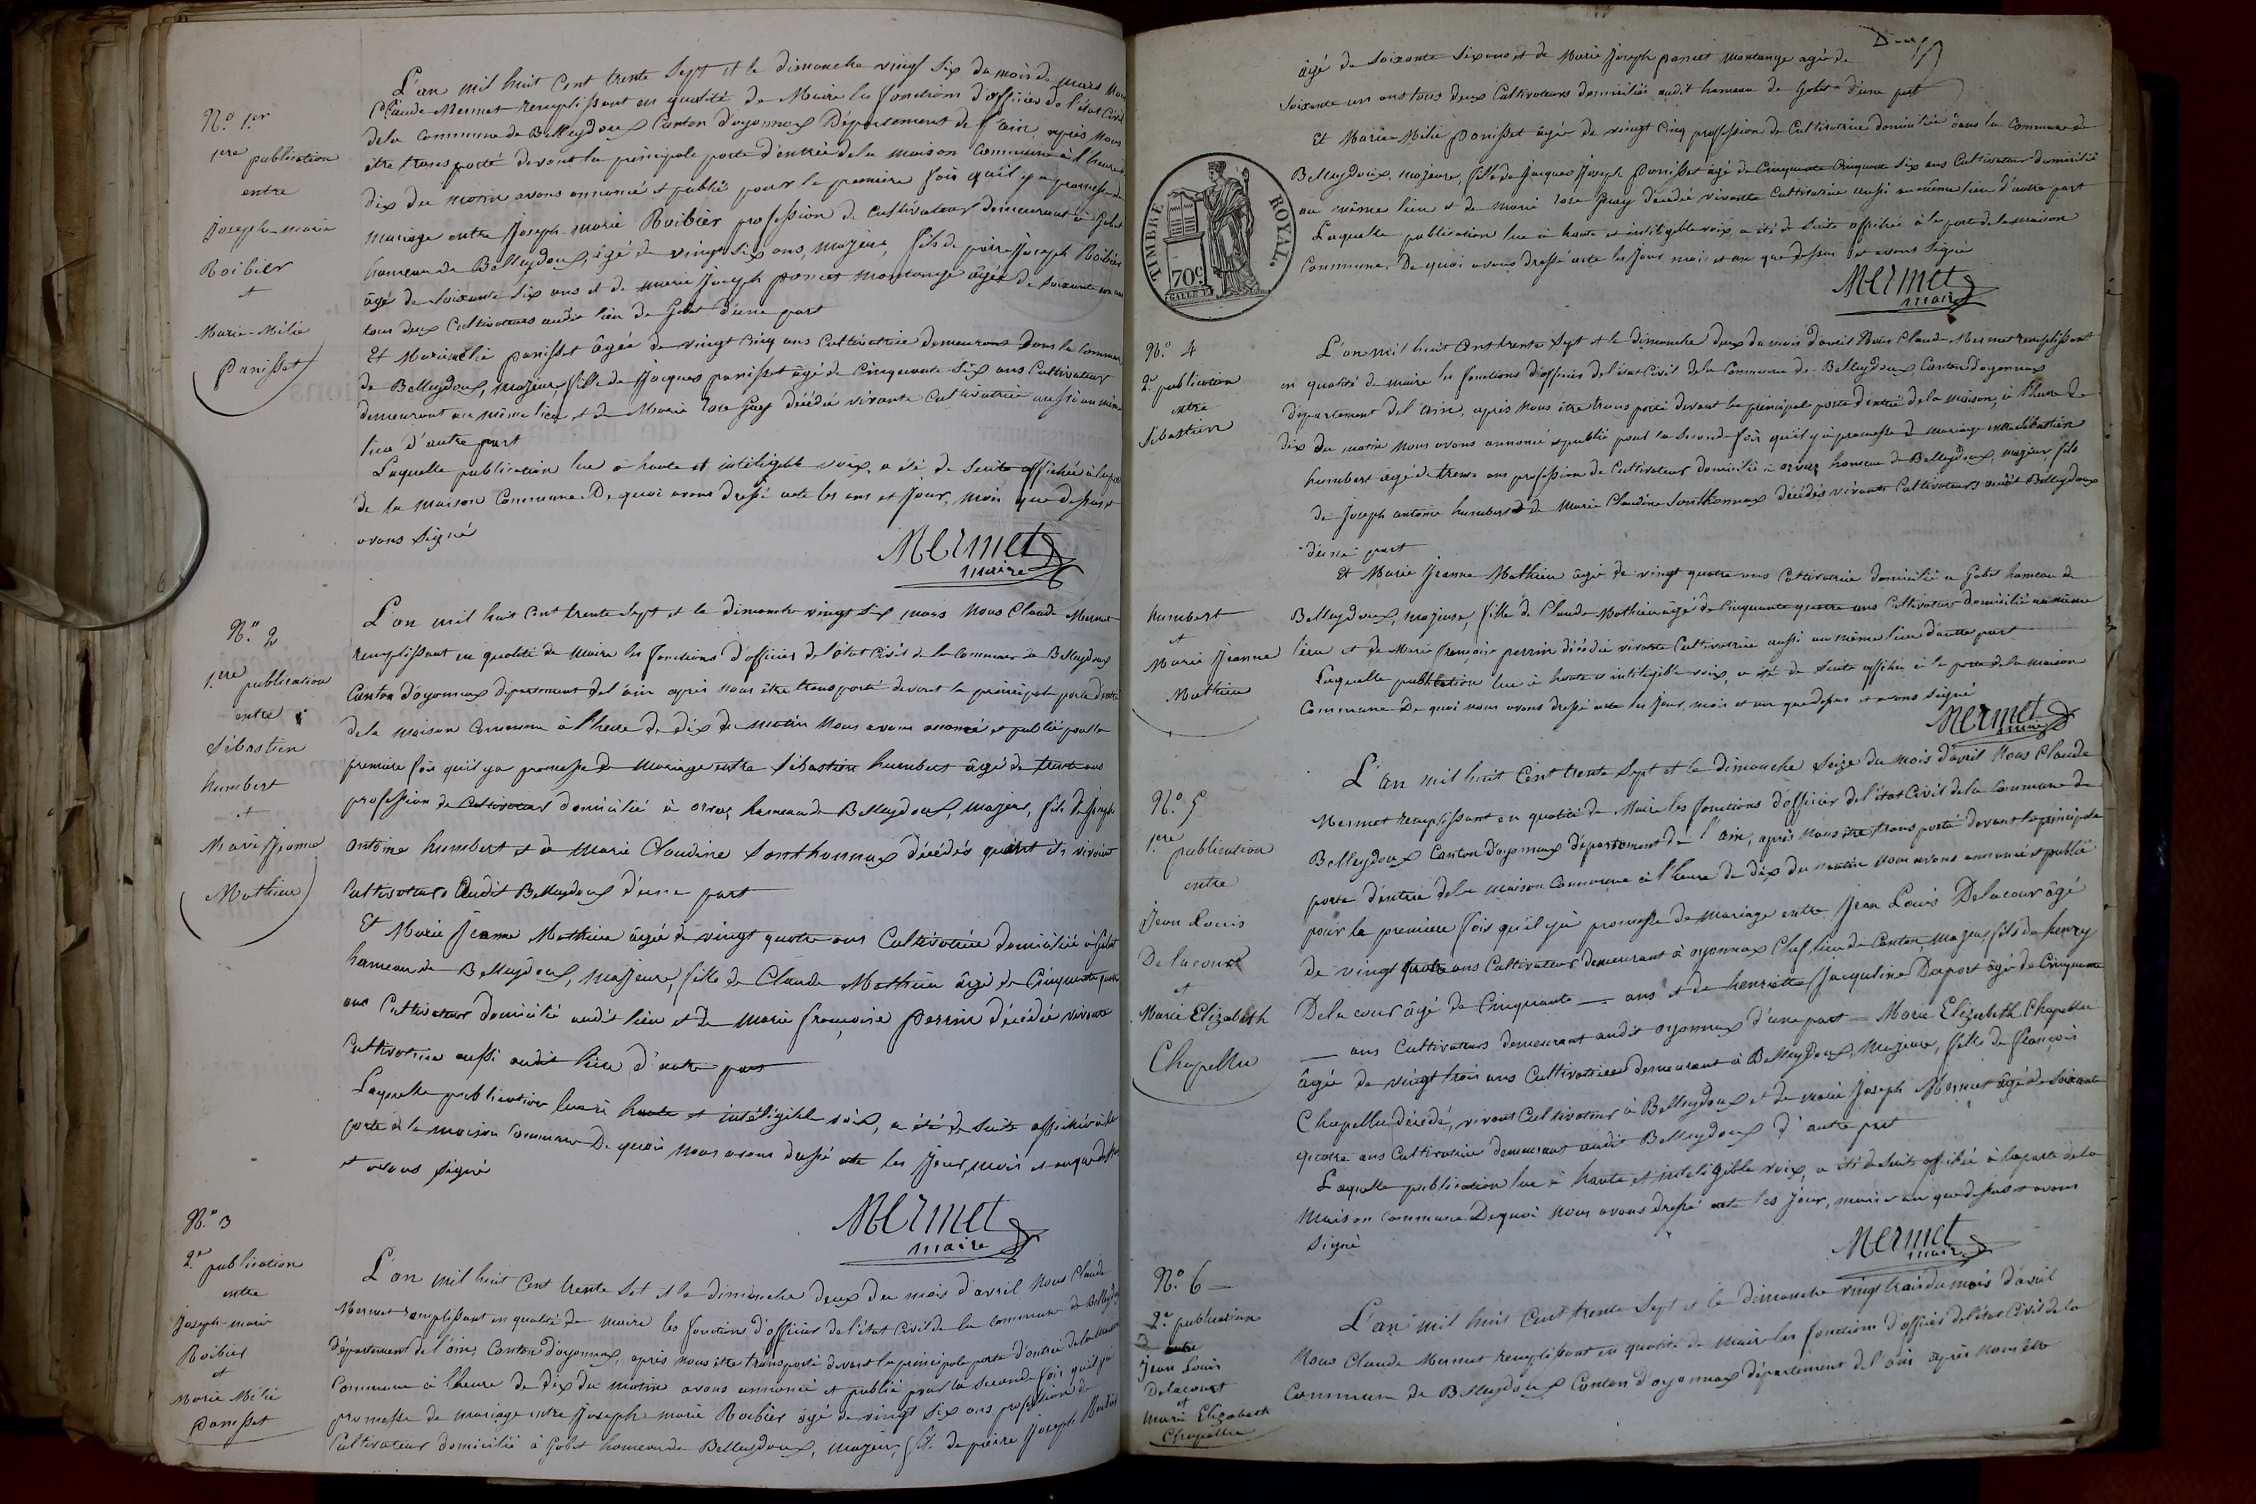 N.o 1.er
1ere publication
entre
Joseph-marie
Roibier
et
Marie-Mélie
Panisset
L'an mil huit Cent trente Sept et le dimanche vingt Six du mois de mars Nous
Claude Mermet remplissant en qualité de Maire les fonctions d'officier de l'état Civil
dela Commune de Belleydoux Canton d'oyonnax Département de l'ain, après Nous
être transporté devant la principale porte d'entrée dela maison Commune à l'heure de
dix du matin avons annoncé et publié pour la première fois qu'il y a promesse de
mariage entre Joseph-marie Roibier profession de Cultivateur demeurant à Gobet
hameau de Belleydoux, âgé de vingt Six ans, majeur, fils de pierre Joseph Roibier
âgé de Soixante Six ans et de marie Joseph poncet montange âgée de Soixante un ans
tous deux Cultivateurs audit lieu de Gobet d'une part
Et Mariemélie panisset âgée de vingt Cinq ans Cultivatrice demeurant Dans la Commune
de Belleydoux, majeure, fille de Jacques panisset âgé de Cinquante Six ans Cultivateur
demeurant au même lieu, et de Marie rose Guey décédée vivante Cultivatrice aussi au même
lieu d'autre part
Laquelle publication lue à haute et intéligible voix, a été de Suite affichée à la porte
de la maison Commune. De quoi avons dressé acte les ans et Jour, mois que dessus et
avons Signé
Mermet
maire
N.o 2
1.ere publication
entre
Sébastien
humbert
et
Marie Jeanne
Mathieu
L'an mil huit Cent trente Sept et le dimanche vingt Six mars Nous Claude Mermet
remplissant en qualité de maire les fonctions d'officier de l'état Civil de la Commune de Belleydoux
Canton d'oyonnax département del'ain après nous être transporté devant la principale porte d'entrée
dela maison Commune à l'heure de dix du matin Nous avons annoncé et publié pour la
première fois qu'il y a promesse de mariage entre Sébastien humbert âgé de trente ans
profession de Cultivateur domicilié à orvaz hameau de Belleydoux, majeur, fils de Joseph
antoine humbert et de Marie Claudine Sonthonnax décédés quant ils vivoient
Cultivateurs Audit Belleydoux d'une part
Et Marie Jeanne Mathieu âgée de vingt quatre ans Cultivatrice domiciliée à Gobet
hameau de Belleydoux, majeure, fille de Claude Mathieu âgé de Cinquante quatre
ans Cultivateur domicilié audit lieu et de Marie françoise perrin décédée vivante
Cultivatrice aussi audit lieu d'autre part
Laquelle publication lue à haute et intéligible voix, a été de Suite affichée à la
porte de la maison Commune De quoi nous avons dressé acte les Jour, mois et an que dessus
et avons Signé
Mermet
maire
N.o 3
2.e publication
entre
Joseph-marie
Roibier
et
Marie Mélie
Panisset
L'an mil huit Cent trente Set et le dimanche deux du mois d'avril Nous Claude
Mermet remplissant en qualité de maire les fonctions d'officier de l'état Civil de la commune de Belleydoux
département del'ain, Canton d'oyonnax, après nous être transporté devant la principale porte d'entrée dela maison
Commune à l'heure de dix du matin avons annoncé et publié pour la Seconde fois qu'il y a
promesse de mariage entre Joseph marie Roibier âgé de vingt Six ans profession de
Cultivateur domicilié à Gobet hameau de Belleydoux, majeur, fils de pierre Joseph Roibier
Deux
âgé de Soixante Six ans et de Marie Joseph poncet montange agée de
Soixante un ans tous deux Cultivateurs domiciliés audit hameau de Gobet d'une part
Et Marie Mélie Panisset âgée de vingt Cinq profession de Cultivatrice domiciliée dans la Commune de
Belleydoux, majeure, fille de Jacques Joseph Panisset âgé de Cinquante Cinquante Six ans Cultivateur domicilié
au même lieu et de Marie rose Guey décédée vivante Cultivatrice aussi au même lieu d'autre part
Laquelle publication lue à haute et intéligible voix a été de Suite affichée à la porte de la maison
Commune. De quoi avons dressé acte les Jour mois et an que dessus et avons Signé
Mermet
maire
TIMBRE ROYAL.
70c
N.o 4
2e publication
entre
Sébastien
humbert
et
Marie Jeanne
Mathieu
L'an mil huit Cent trente Sept et le dimanche deux du mois d'avril Nous Claude Mermet remplissant
en qualité de maire les fonctions d'officier de l'état Civil dela Commune de Belleydoux Canton d'oyonnax
département del'ain, après Nous être transporté devant la principale porte d'entrée de la maison, à l'heure de
dix du matin nous avons annoncé et publié pour la Seconde fois qu'il y a promesse de mariage entre Sébastien
humbert âgé de trente ans profession de Cultivateur domicilié à orvaz hameau de Belleydoux, majeur fils
de Joseph antoine humbert et de Marie Claudine Sonthonnax décédés vivants Cultivateurs audit Belleydoux
d'une part
Et Marie Jeanne Mathieu âgée de vingt quatre ans Cultivatrice domiciliée à Gobet hameau de
Belleydoux, majeure, fille de Claude Mathieu âgé de Cinquante quatre ans Cultivateur domicilié au même
lieu et de Marie françoise perrin décédée vivante Cultivatrice aussi au même lieu d'autre part
Laquelle publication lue à haute et intéligible voix, a été de Suite affichée à la porte de la maison
Commune De quoi nous avons dressé acte les Jour, mois et an que dessus et avons Signé
Mermet
maire
N.o 5
1ere publication
entre
Jean Louis
Delacourt
et
Marie Elizabeth
Chapellu
L'an mil huit Cent trente Sept et le dimanche Seize du mois d'avril Nous Claude
Mermet remplissant en qualité de Maire les fonctions d'officier de l'état Civil dela Commune de
Belleydoux Canton d'oyonnax département de l'ain, après Nous être transporté devant la principale
porte d'entrée dela maison Commune à l'heure de dix du matin nous avons annoncé et publié
pour la première fois qu'il y a promesse de mariage entre Jean Louis Delacour âgé
de vingt quatre ans Cultivateur demeurant à oyonnax Chef lieu de Canton, majeur, fils de henry
Delacour âgé de Cinquante — ans et de henriette Jacqueline Duport âgée de Cinquante
— ans Cultivateurs demeurant audit oyonnax d'une part — Marie Elizabeth Chapellu
âgée de vingt trois ans Cultivatrice demeurant à Belleydoux, Majeure, fille de François
Chapellu décédé, vivant Cultivateur à Belleydoux et de marie Joseph Mermet âgée de Soixante
quatre ans Cultivatrice demeurant audit Belleydoux d'autre part
Laquelle publication lue à haute et inteligible voix, a été de Suite affichée à la porte dela
maison commune De quoi nous avons dressé acte les Jour, mois et an que dessus et avons
Signé
Mermet
maire
N.o 6 —
2.e publication
entre
Jean Louis
Delacourt
et
Marie Elizabeth
Chapellu
L'an mil huit Cent trente Sept et le dimanche vingt trois du mois d'avril
Nous Claude Mermet remplissant en qualité de maire les fonctions d'officier de l'état Civil de la
Commune de Belleydoux Canton d'oyonnax département del'ain après nous être